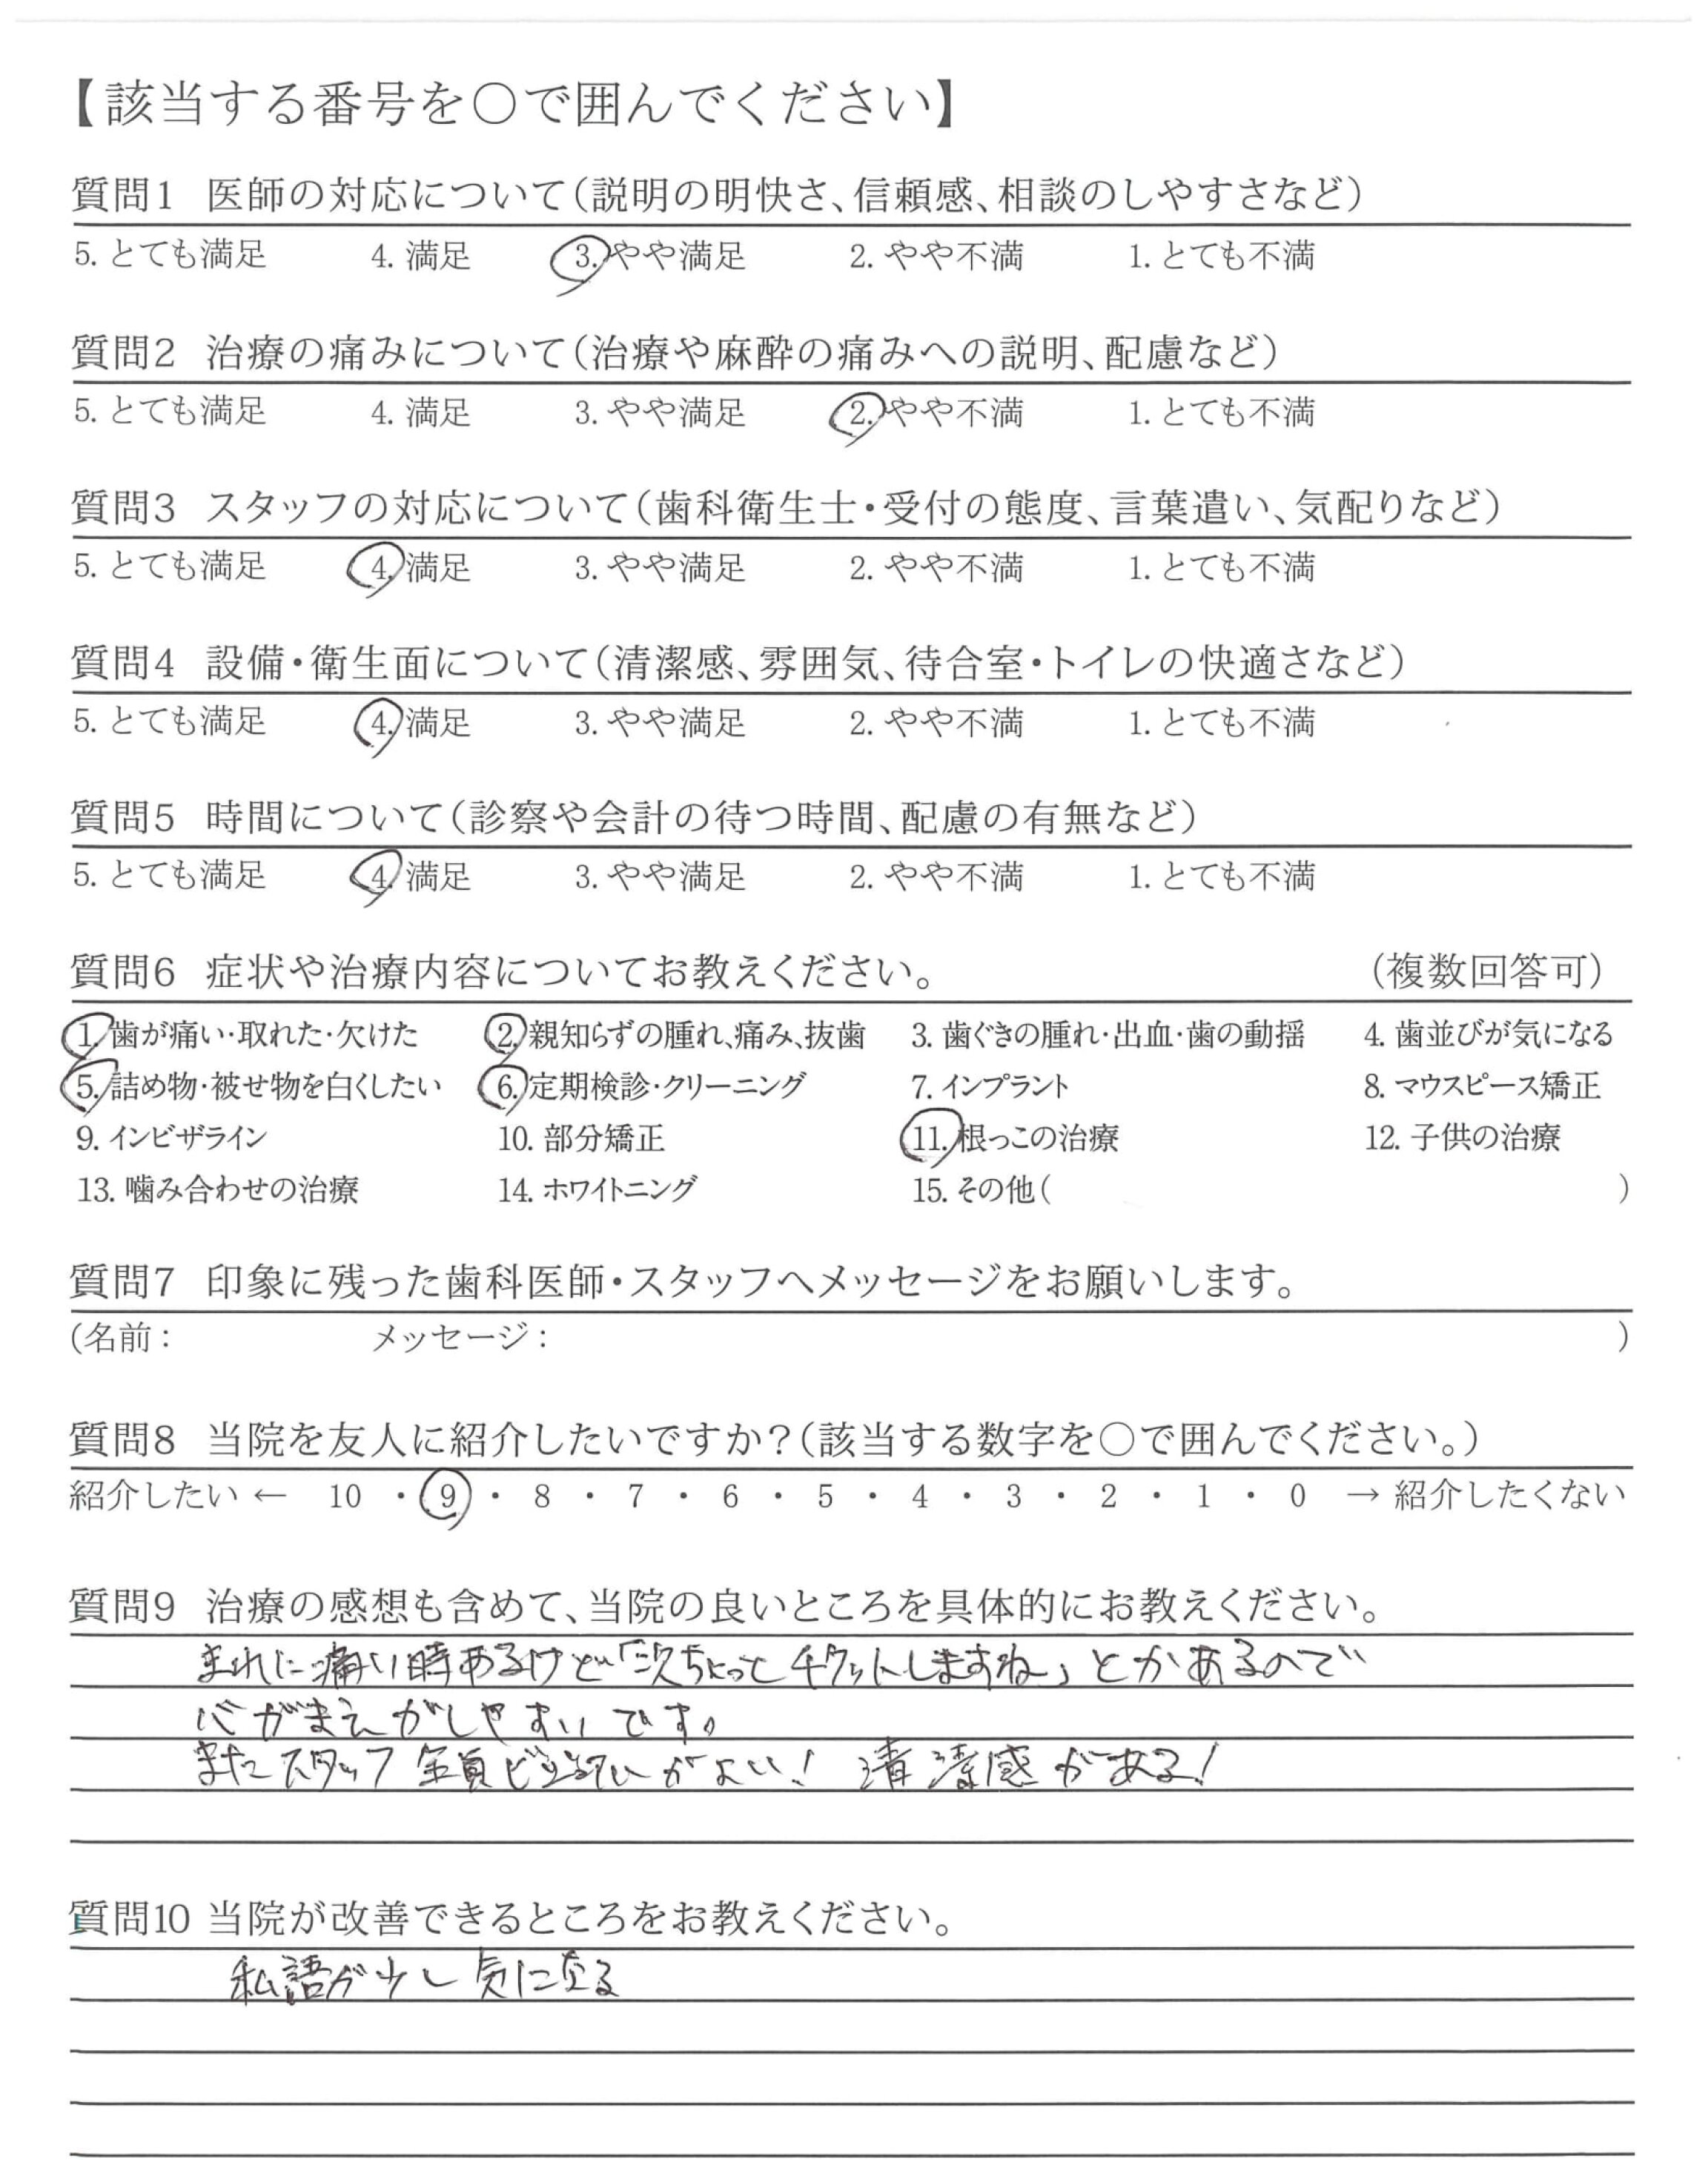 【該当する番号を○で囲んでください】
質問1 医師の対応について(説明の明快さ、信頼感、相談のしやすさなど)
5. とても満足 4. 満足 3. やや満足 2. やや不満 1. とても不満
質問2 治療の痛みについて(治療や麻酔の痛みへの説明、配慮など)
5. とても満足 4. 満足 3. やや満足 2. やや不満 1. とても不満
質問3 スタッフの対応について(歯科衛生士・受付の態度、言葉遣い、気配りなど)
5. とても満足 4. 満足 3. やや満足 2. やや不満 1. とても不満
質問4 設備・衛生面について(清潔感、雰囲気、待合室・トイレの快適さなど)
5. とても満足 4. 満足 3. やや満足 2. やや不満 1. とても不満
質問5 時間について(診察や会計の待つ時間、配慮の有無など)
5. とても満足 4. 満足 3. やや満足 2. やや不満 1. とても不満
質問6 症状や治療内容についてお教えください。 (複数回答可)
1. 歯が痛い・取れた・欠けた 2. 親知らずの腫れ、痛み、抜歯 3. 歯ぐきの腫れ・出血・歯の動揺 4. 歯並びが気になる
5. 詰め物・被せ物を白くしたい 6. 定期検診・クリーニング 7. インプラント 8. マウスピース矯正
9. インビザライン 10. 部分矯正 11. 根っこの治療 12. 子供の治療
13. 噛み合わせの治療 14. ホワイトニング 15. その他( )
質問7 印象に残った歯科医師・スタッフへメッセージをお願いします。
(名前: メッセージ: )
質問8 当院を友人に紹介したいですか?(該当する数字を○で囲んでください。)
紹介したい ← 10 ・ 9 ・ 8 ・ 7 ・ 6 ・ 5 ・ 4 ・ 3 ・ 2 ・ 1 ・ 0 → 紹介したくない
質問9 治療の感想も含めて、当院の良いところを具体的にお教えください。
まれに痛い時あるけど「次ちょっとチクットしますね」とかあるので
心がまえがしやすいです。
またスタッフ全員 がよい! 清潔感がある!
質問10 当院が改善できるところをお教えください。
私語が少し気になる